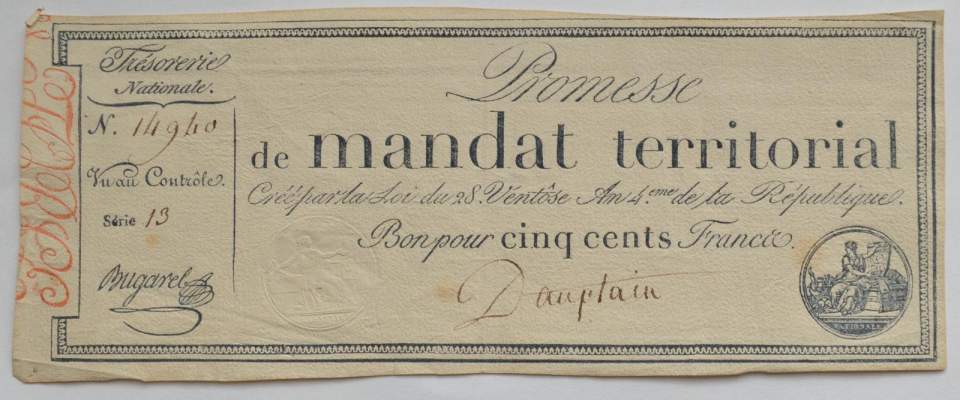 Trésorerie
Nationale.
N. 14940
Vu au Contrôle.
Série 13
Bugarel
Promesse
de mandat territorial
Créé par la Loi du 28. Ventôse An 4.eme de la République.
Bon pour cinq cents Francs.
NATIONALE